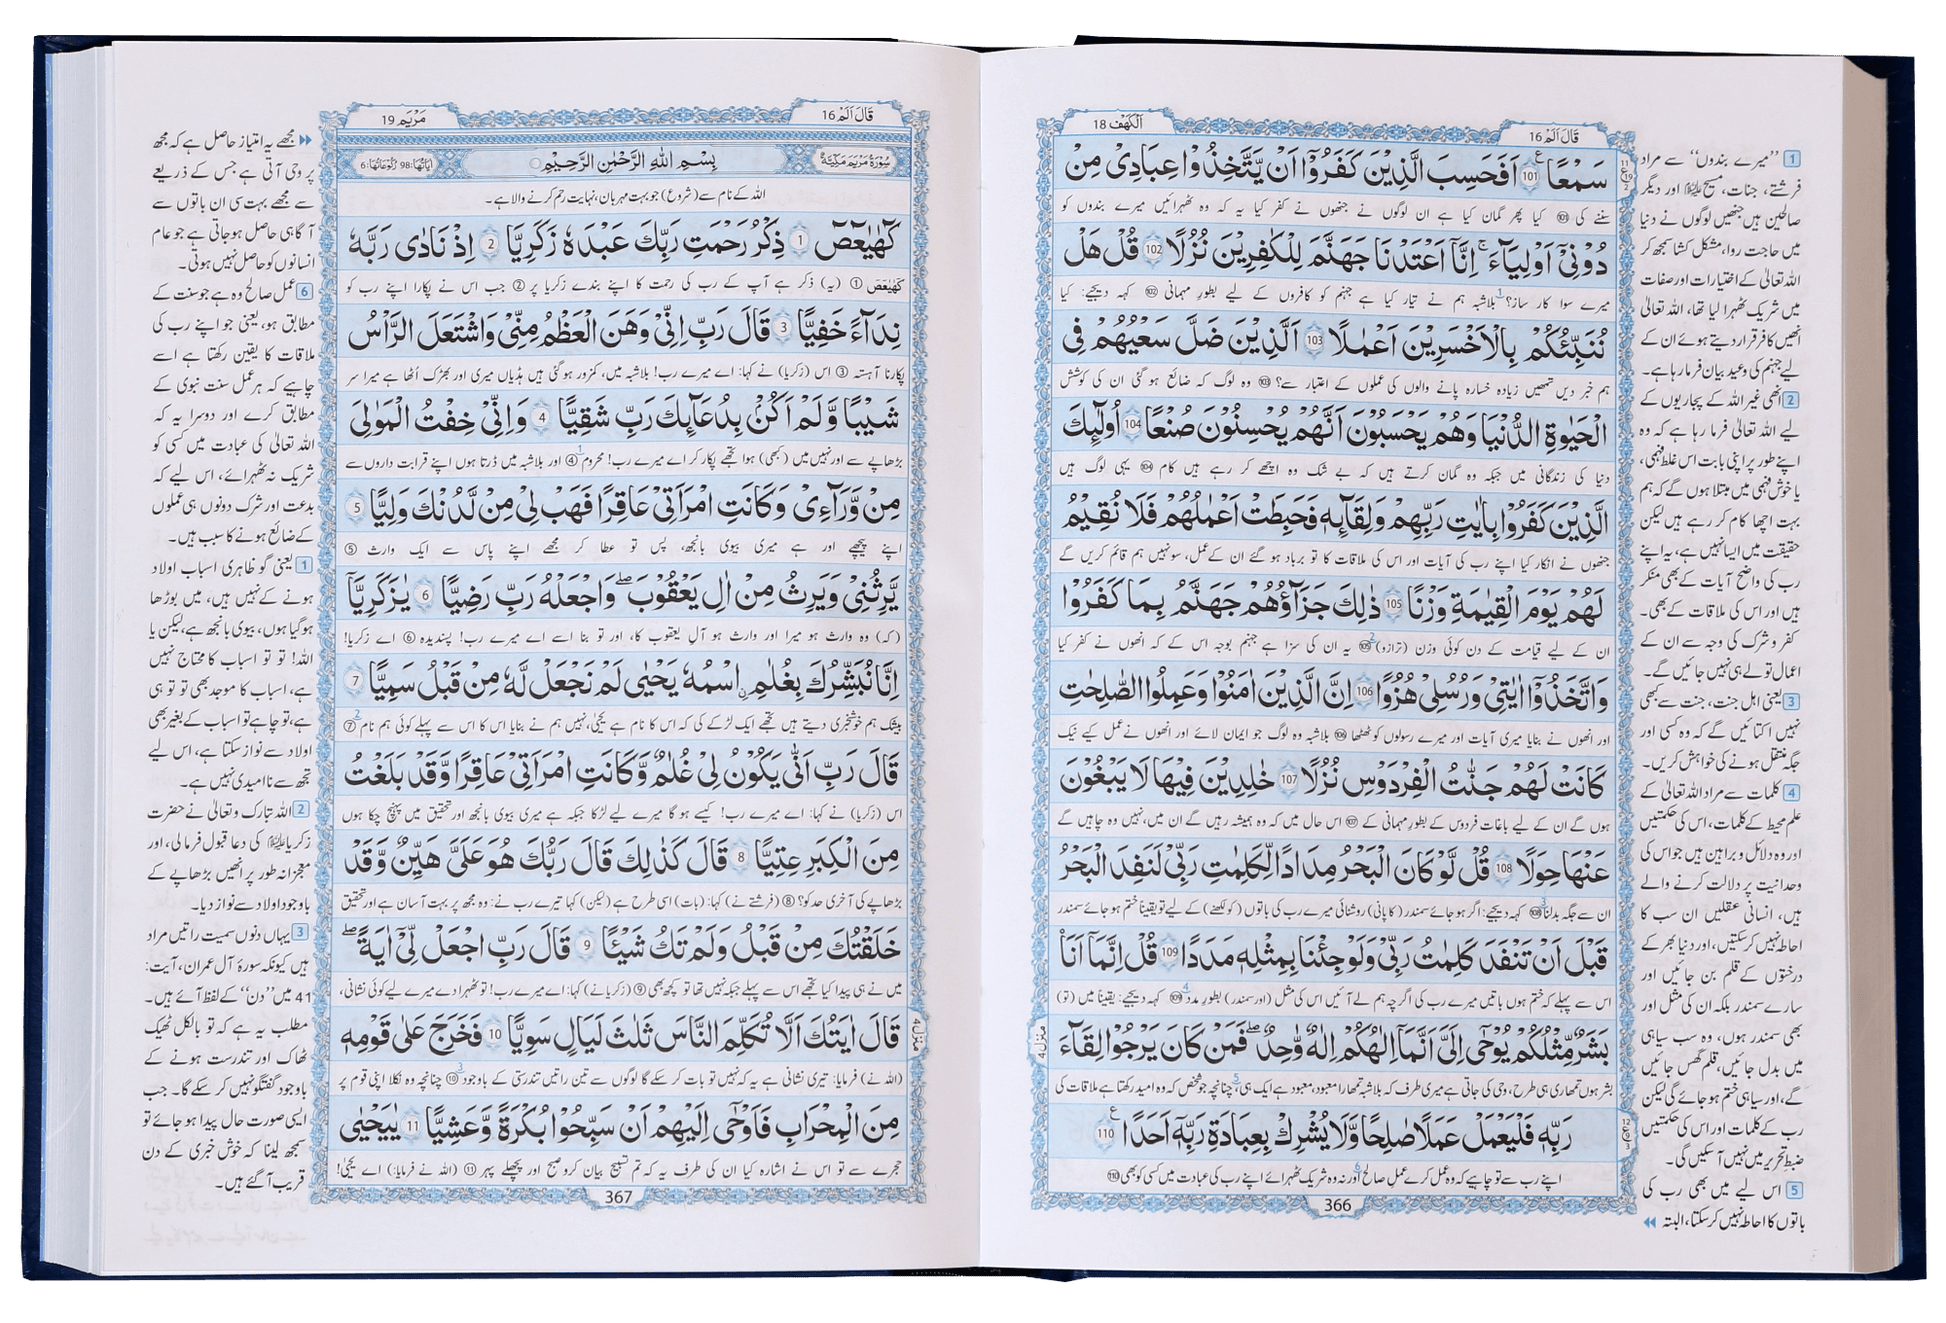 قَالَ اَلَمْ 16
اَلْكَهْف 18
سَمْعًا 101 اَفَحَسِبَ الَّذِيْنَ كَفَرُوْۤا اَنْ يَّتَّخِذُوْا عِبَادِىْ مِنْ
سننے کی 101 کیا پھر گمان کیا ہے ان لوگوں نے جنھوں نے کفر کیا یہ کہ وہ ٹھہرائیں میرے بندوں کو
دُوْنِىْۤ اَوْلِيَآءَ ۚ اِنَّاۤ اَعْتَدْنَا جَهَنَّمَ لِلْكٰفِرِيْنَ نُزُلًا 102 قُلْ هَلْ
میرے سوا کار ساز؟ 1 بلاشبہ ہم نے تیار کیا ہے جہنم کو کافروں کے لیے بطورِ مہمانی 102 کہہ دیجیے: کیا
نُنَبِّئُكُمْ بِالْاَخْسَرِيْنَ اَعْمٰلًا 103 اَلَّذِيْنَ ضَلَّ سَعْيُهُمْ فِى
ہم خبر دیں تمھیں زیادہ خسارہ پانے والوں کی عملوں کے اعتبار سے؟ 103 وہ لوگ کہ ضائع ہو گئی ان کی کوشش
الْحَيٰوةِ الدُّنْيَا وَهُمْ يَحْسَبُوْنَ اَنَّهُمْ يُحْسِنُوْنَ صُنْعًا 104 اُولٰٓئِكَ
دنیا کی زندگانی میں جبکہ وہ گمان کرتے ہیں کہ بے شک وہ اچھے کر رہے ہیں کام 104 یہی لوگ ہیں
الَّذِيْنَ كَفَرُوْا بِاٰيٰتِ رَبِّهِمْ وَلِقَآئِهٖ فَحَبِطَتْ اَعْمٰلُهُمْ فَلَا نُقِيْمُ
جنھوں نے انکار کیا اپنے رب کی آیات اور اس کی ملاقات کا تو برباد ہو گئے ان کے عمل، سو نہیں ہم قائم کریں گے
لَهُمْ يَوْمَ الْقِيٰمَةِ وَزْنًا 105 ذٰلِكَ جَزَآؤُهُمْ جَهَنَّمُ بِمَا كَفَرُوْا
ان کے لیے قیامت کے دن کوئی وزن (ترازو) 2 105 یہ ان کی سزا ہے جہنم بوجہ اس کے کہ انھوں نے کفر کیا
وَاتَّخَذُوْۤا اٰيٰتِىْ وَرُسُلِىْ هُزُوًا 106 اِنَّ الَّذِيْنَ اٰمَنُوْا وَعَمِلُوا الصّٰلِحٰتِ
اور انھوں نے بنایا میری آیات اور میرے رسولوں کو ٹھٹھا 106 بلاشبہ وہ لوگ جو ایمان لائے اور انھوں نے عمل کیے نیک
كَانَتْ لَهُمْ جَنّٰتُ الْفِرْدَوْسِ نُزُلًا 107 خٰلِدِيْنَ فِيْهَا لَا يَبْغُوْنَ
ہوں گے ان کے لیے باغات فردوس کے بطورِ مہمانی کے 107 اس حال میں کہ وہ ہمیشہ رہیں گے ان میں، نہیں وہ چاہیں گے
عَنْهَا حِوَلًا 108 قُلْ لَّوْ كَانَ الْبَحْرُ مِدَادًا لِّكَلِمٰتِ رَبِّىْ لَنَفِدَ الْبَحْرُ
ان سے جگہ بدلنا 3 108 کہہ دیجیے: اگر ہو جائے سمندر (کا پانی) روشنائی میرے رب کی باتوں (کو لکھنے) کے لیے تو یقیناً ختم ہو جائے سمندر
قَبْلَ اَنْ تَنْفَدَ كَلِمٰتُ رَبِّىْ وَلَوْ جِئْنَا بِمِثْلِهٖ مَدَدًا 109 قُلْ اِنَّمَاۤ اَنَا
اس سے پہلے کہ ختم ہوں باتیں میرے رب کی اگرچہ ہم لے آئیں اس کی مثل (اور سمندر) بطورِ مدد 4 109 کہہ دیجیے: یقیناً میں (تو)
بَشَرٌ مِّثْلُكُمْ يُوْحٰۤى اِلَىَّ اَنَّمَاۤ اِلٰهُكُمْ اِلٰهٌ وّٰحِدٌ ۖ فَمَنْ كَانَ يَرْجُوْا لِقَآءَ
بشر ہوں تمھاری ہی طرح، وحی کی جاتی ہے میری طرف کہ بلاشبہ تمھارا معبود، معبود ہے ایک ہی، 5 چنانچہ جو شخص کہ وہ امید رکھتا ہے ملاقات کی
رَبِّهٖ فَلْيَعْمَلْ عَمَلًا صٰلِحًا وَّلَا يُشْرِكْ بِعِبَادَةِ رَبِّهٖۤ اَحَدًا 110
اپنے رب سے تو چاہیے کہ وہ عمل کرے عمل صالح 6 اور نہ وہ شریک ٹھہرائے اپنے رب کی عبادت میں کسی کو بھی 110
منزل 4
366
1 ’’میرے بندوں‘‘ سے مراد
فرشتے، جنات، مسیح علیہ السلام اور دیگر
صالحین ہیں جنھیں لوگوں نے دنیا
میں حاجت روا، مشکل کشا سمجھ کر
اللہ تعالیٰ کے اختیارات اور صفات
میں شریک ٹھہرا لیا تھا، اللہ تعالیٰ
انھیں کافر قرار دیتے ہوئے ان کے
لیے جہنم کی وعید بیان فرما رہا ہے۔
2 انھی غیر اللہ کے پجاریوں کے
لیے اللہ تعالیٰ فرما رہا ہے کہ وہ
اپنے طور پر اپنی بابت اس غلط فہمی،
یا خوش فہمی میں مبتلا ہوں گے کہ ہم
بہت اچھا کام کر رہے ہیں لیکن
حقیقت میں ایسا نہیں ہے، یہ اپنے
رب کی واضح آیات کے بھی منکر
ہیں اور اس کی ملاقات کے بھی۔
کفر و شرک کی وجہ سے ان کے
اعمال تولے ہی نہیں جائیں گے۔
3 یعنی اہل جنت، جنت سے کبھی
نہیں اکتائیں گے کہ وہ کسی اور
جگہ منتقل ہونے کی خواہش کریں۔
4 کلمات سے مراد اللہ تعالیٰ کے
علم محیط کے کلمات، اس کی حکمتیں
اور وہ دلائل و براہین ہیں جو اس کی
وحدانیت پر دلالت کرنے والے
ہیں، انسانی عقلیں ان سب کا
احاطہ نہیں کر سکتیں، اور دنیا بھر کے
درختوں کے قلم بن جائیں اور
سارے سمندر بلکہ ان کی مثل اور
بھی سمندر ہوں، وہ سب سیاہی
میں بدل جائیں، قلم گھس جائیں
گے، اور سیاہی ختم ہو جائے گی لیکن
رب کے کلمات اور اس کی حکمتیں
ضبطِ تحریر میں نہیں آ سکیں گی۔
5 اس لیے میں بھی رب کی
باتوں کا احاطہ نہیں کر سکتا، البتہ
قَالَ اَلَمْ 16
مَرْيَم 19
سُوْرَةُ مَرْيَمَ مَكِّيَّةٌ
بِسْمِ اللهِ الرَّحْمٰنِ الرَّحِيْمِ
اٰيَاتُهَا: 98 رُكُوْعَاتُهَا: 6
اللہ کے نام سے (شروع) جو بہت مہربان، نہایت رحم کرنے والا ہے۔
كٓهٰيٰعٓصٓ 1 ذِكْرُ رَحْمَتِ رَبِّكَ عَبْدَهٗ زَكَرِيَّا 2 اِذْ نَادٰى رَبَّهٗ
کھٰیٰعص 1 (یہ) ذکر ہے آپ کے رب کی رحمت کا اپنے بندے زکریا پر 2 جب اس نے پکارا اپنے رب کو
نِدَآءً خَفِيًّا 3 قَالَ رَبِّ اِنِّىْ وَهَنَ الْعَظْمُ مِنِّىْ وَاشْتَعَلَ الرَّاْسُ
پکارنا آہستہ 3 اس (زکریا) نے کہا: اے میرے رب! بلاشبہ میں، کمزور ہو گئی ہیں ہڈیاں میری اور بھڑک اُٹھا ہے میرا سر
شَيْبًا وَّلَمْ اَكُنْۢ بِدُعَآئِكَ رَبِّ شَقِيًّا 4 وَاِنِّىْ خِفْتُ الْمَوٰلِىَ
بڑھاپے سے اور نہیں میں (کبھی) ہوا تجھے پکار کر اے میرے رب! محروم 1 4 اور بلاشبہ میں ڈرتا ہوں اپنے قرابت داروں سے
مِنْ وَّرَآءِىْ وَكَانَتِ امْرَاَتِىْ عَاقِرًا فَهَبْ لِىْ مِنْ لَّدُنْكَ وَلِيًّا 5
اپنے پیچھے اور ہے میری بیوی بانجھ، پس تو عطا کر مجھے اپنے پاس سے ایک وارث 5
يَّرِثُنِىْ وَيَرِثُ مِنْ اٰلِ يَعْقُوْبَ ۖ وَاجْعَلْهُ رَبِّ رَضِيًّا 6 يٰزَكَرِيَّاۤ
(کہ) وہ وارث ہو میرا اور وارث ہو آلِ یعقوب کا، اور تو بنا اسے اے میرے رب! پسندیدہ 6 اے زکریا!
اِنَّا نُبَشِّرُكَ بِغُلٰمِ ۨاسْمُهٗ يَحْيٰى لَمْ نَجْعَلْ لَّهٗ مِنْ قَبْلُ سَمِيًّا 7
بیشک ہم خوشخبری دیتے ہیں تجھے ایک لڑکے کی کہ اس کا نام ہے یحییٰ، نہیں ہم نے بنایا اس کا اس سے پہلے کوئی ہم نام 2 7
قَالَ رَبِّ اَنّٰى يَكُوْنُ لِىْ غُلٰمٌ وَّكَانَتِ امْرَاَتِىْ عَاقِرًا وَّقَدْ بَلَغْتُ
اس (زکریا) نے کہا: اے میرے رب! کیسے ہو گا میرے لیے لڑکا جبکہ ہے میری بیوی بانجھ اور تحقیق میں پہنچ چکا ہوں
مِنَ الْكِبَرِ عِتِيًّا 8 قَالَ كَذٰلِكَ قَالَ رَبُّكَ هُوَ عَلَىَّ هَيِّنٌ وَّقَدْ
بڑھاپے کی آخری حد کو؟ 8 (فرشتے نے) کہا: (بات) اسی طرح ہے (لیکن) کہا تیرے رب نے: وہ مجھ پر بہت آسان ہے اور تحقیق
خَلَقْتُكَ مِنْ قَبْلُ وَلَمْ تَكُ شَيْئًا 9 قَالَ رَبِّ اجْعَلْ لِّىْۤ اٰيَةً ۖ
میں نے ہی پیدا کیا تجھے اس سے پہلے جبکہ نہیں تھا تو کچھ بھی 9 (زکریا نے) کہا: اے میرے رب! تو ٹھہرا دے میرے لیے کوئی نشانی،
قَالَ اٰيَتُكَ اَلَّا تُكَلِّمَ النَّاسَ ثَلٰثَ لَيَالٍ سَوِيًّا 10 فَخَرَجَ عَلٰى قَوْمِهٖ
(اللہ نے) فرمایا: تیری نشانی ہے یہ کہ نہیں تو بات کر سکے گا لوگوں سے تین راتیں تندرستی کے باوجود 3 10 چنانچہ وہ نکلا اپنی قوم پر
مِنَ الْمِحْرَابِ فَاَوْحٰۤى اِلَيْهِمْ اَنْ سَبِّحُوْا بُكْرَةً وَّعَشِيًّا 11 يٰيَحْيٰى
حجرے سے تو اس نے اشارہ کیا ان کی طرف یہ کہ تم تسبیح بیان کرو صبح اور پچھلے پہر 11 (اللہ نے فرمایا:) اے یحییٰ!
منزل 4
367
مجھے یہ امتیاز حاصل ہے کہ مجھ
پر وحی آتی ہے جس کے ذریعے
سے مجھے بہت سی ان باتوں سے
آگاہی حاصل ہو جاتی ہے جو عام
انسانوں کو حاصل نہیں ہوتی۔
6 عمل صالح وہ ہے جو سنت کے
مطابق ہو، یعنی جو اپنے رب کی
ملاقات کا یقین رکھتا ہے اسے
چاہیے کہ ہر عمل سنت نبوی کے
مطابق کرے اور دوسرا یہ کہ
اللہ تعالیٰ کی عبادت میں کسی کو
شریک نہ ٹھہرائے، اس لیے کہ
بدعت اور شرک دونوں ہی عملوں
کے ضائع ہونے کا سبب ہیں۔
1 یعنی گو ظاہری اسباب اولاد
ہونے کے نہیں ہیں، میں بوڑھا
ہو گیا ہوں، بیوی بانجھ ہے، لیکن یا
اللہ! تو تو اسباب کا محتاج نہیں
ہے، اسباب کا موجد بھی تو تو ہی
ہے، تو چاہے تو اسباب کے بغیر بھی
اولاد سے نواز سکتا ہے، اس لیے
تجھ سے نا امیدی نہیں ہے۔
2 اللہ تبارک و تعالیٰ نے حضرت
زکریا علیہ السلام کی دعا قبول فرمالی، اور
معجزانہ طور پر انھیں بڑھاپے کے
باوجود اولاد سے نواز دیا۔
3 یہاں دنوں سمیت راتیں مراد
ہیں کیونکہ سورۂ آل عمران، آیت:
41 میں ’’دن‘‘ کے لفظ آئے ہیں۔
مطلب یہ ہے کہ تو بالکل ٹھیک
ٹھاک اور تندرست ہونے کے
باوجود گفتگو نہیں کر سکے گا۔ جب
ایسی صورت حال پیدا ہو جائے تو
سمجھ لینا کہ خوش خبری کے دن
قریب آ گئے ہیں۔